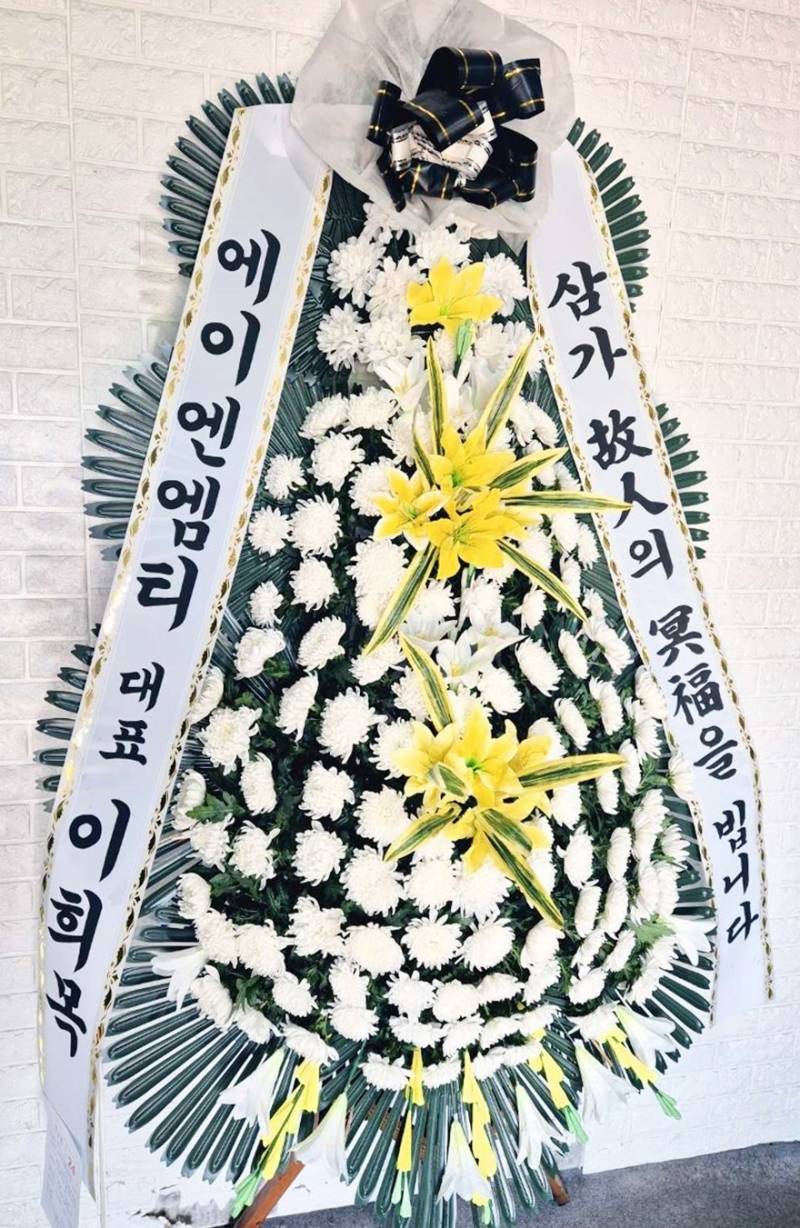 에이엔엠티 대표 이희목
삼가 故人의 冥福을 빕니다